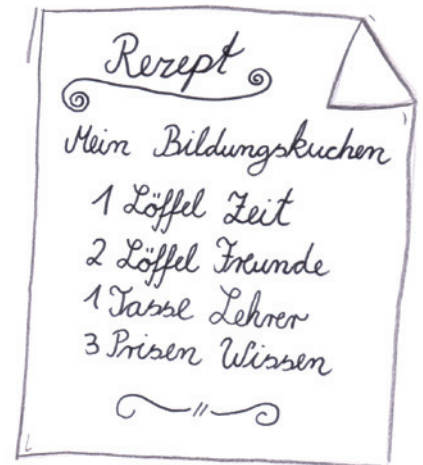 Rezept
Mein Bildungskuchen
1 Löffel Zeit
2 Löffel Freunde
1 Tasse Lehrer
3 Prisen Wissen